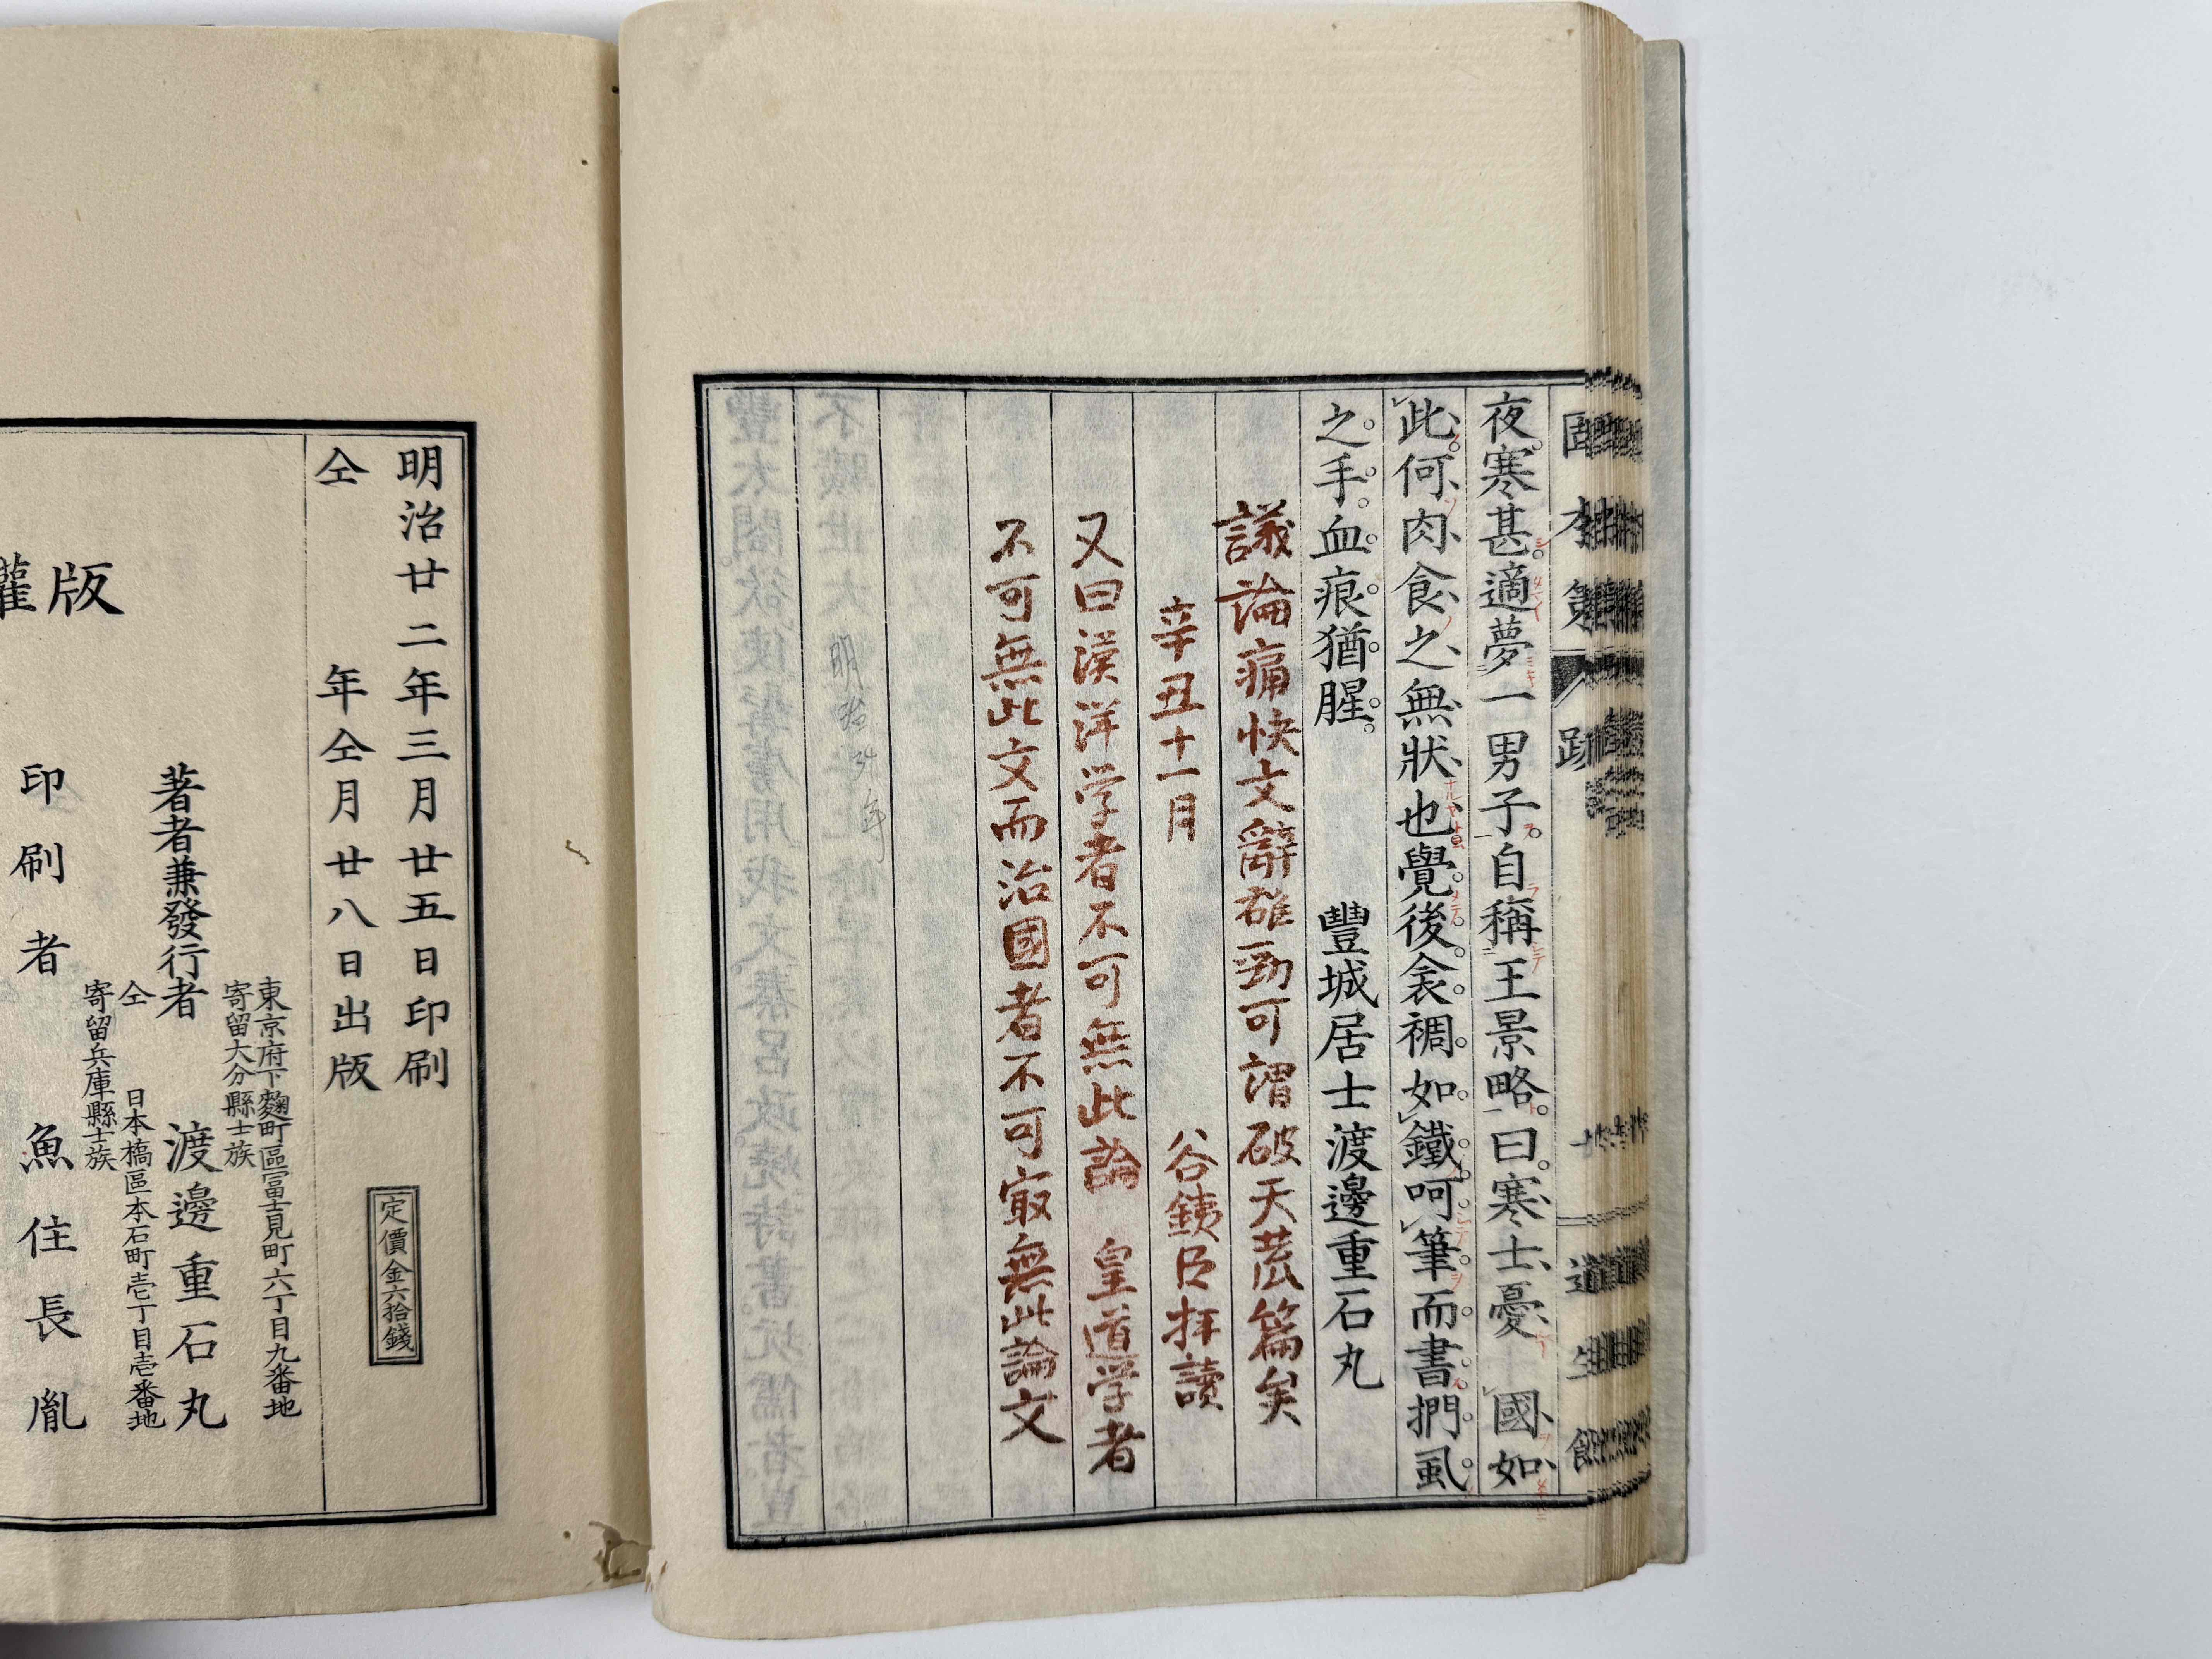 夜。寒甚。適夢一男子。自稱王景略。曰。寒士憂 國如
此。何肉食之無狀也。覺後衾裯如鐵。呵筆而書。捫虱
之手。血痕猶腥。
豐城居士渡邊重石丸
議論痛快文辭雄勁可謂破天荒篇矣
辛丑十一月 谷銕臣拝讀
又曰漢洋学者不可無此論 皇道学者
不可無此文而治國者不可㝡無此論文
明治廿二年三月廿五日印刷
仝 年仝月廿八日出版
定價金六拾錢
東京府下麴町區冨士見町六丁目九番地
寄留大分縣士族
著者兼發行者 渡邊重石丸
仝 日本橋區本石町壱丁目壱番地
寄留兵庫縣士族
印刷者 魚住長胤
版權